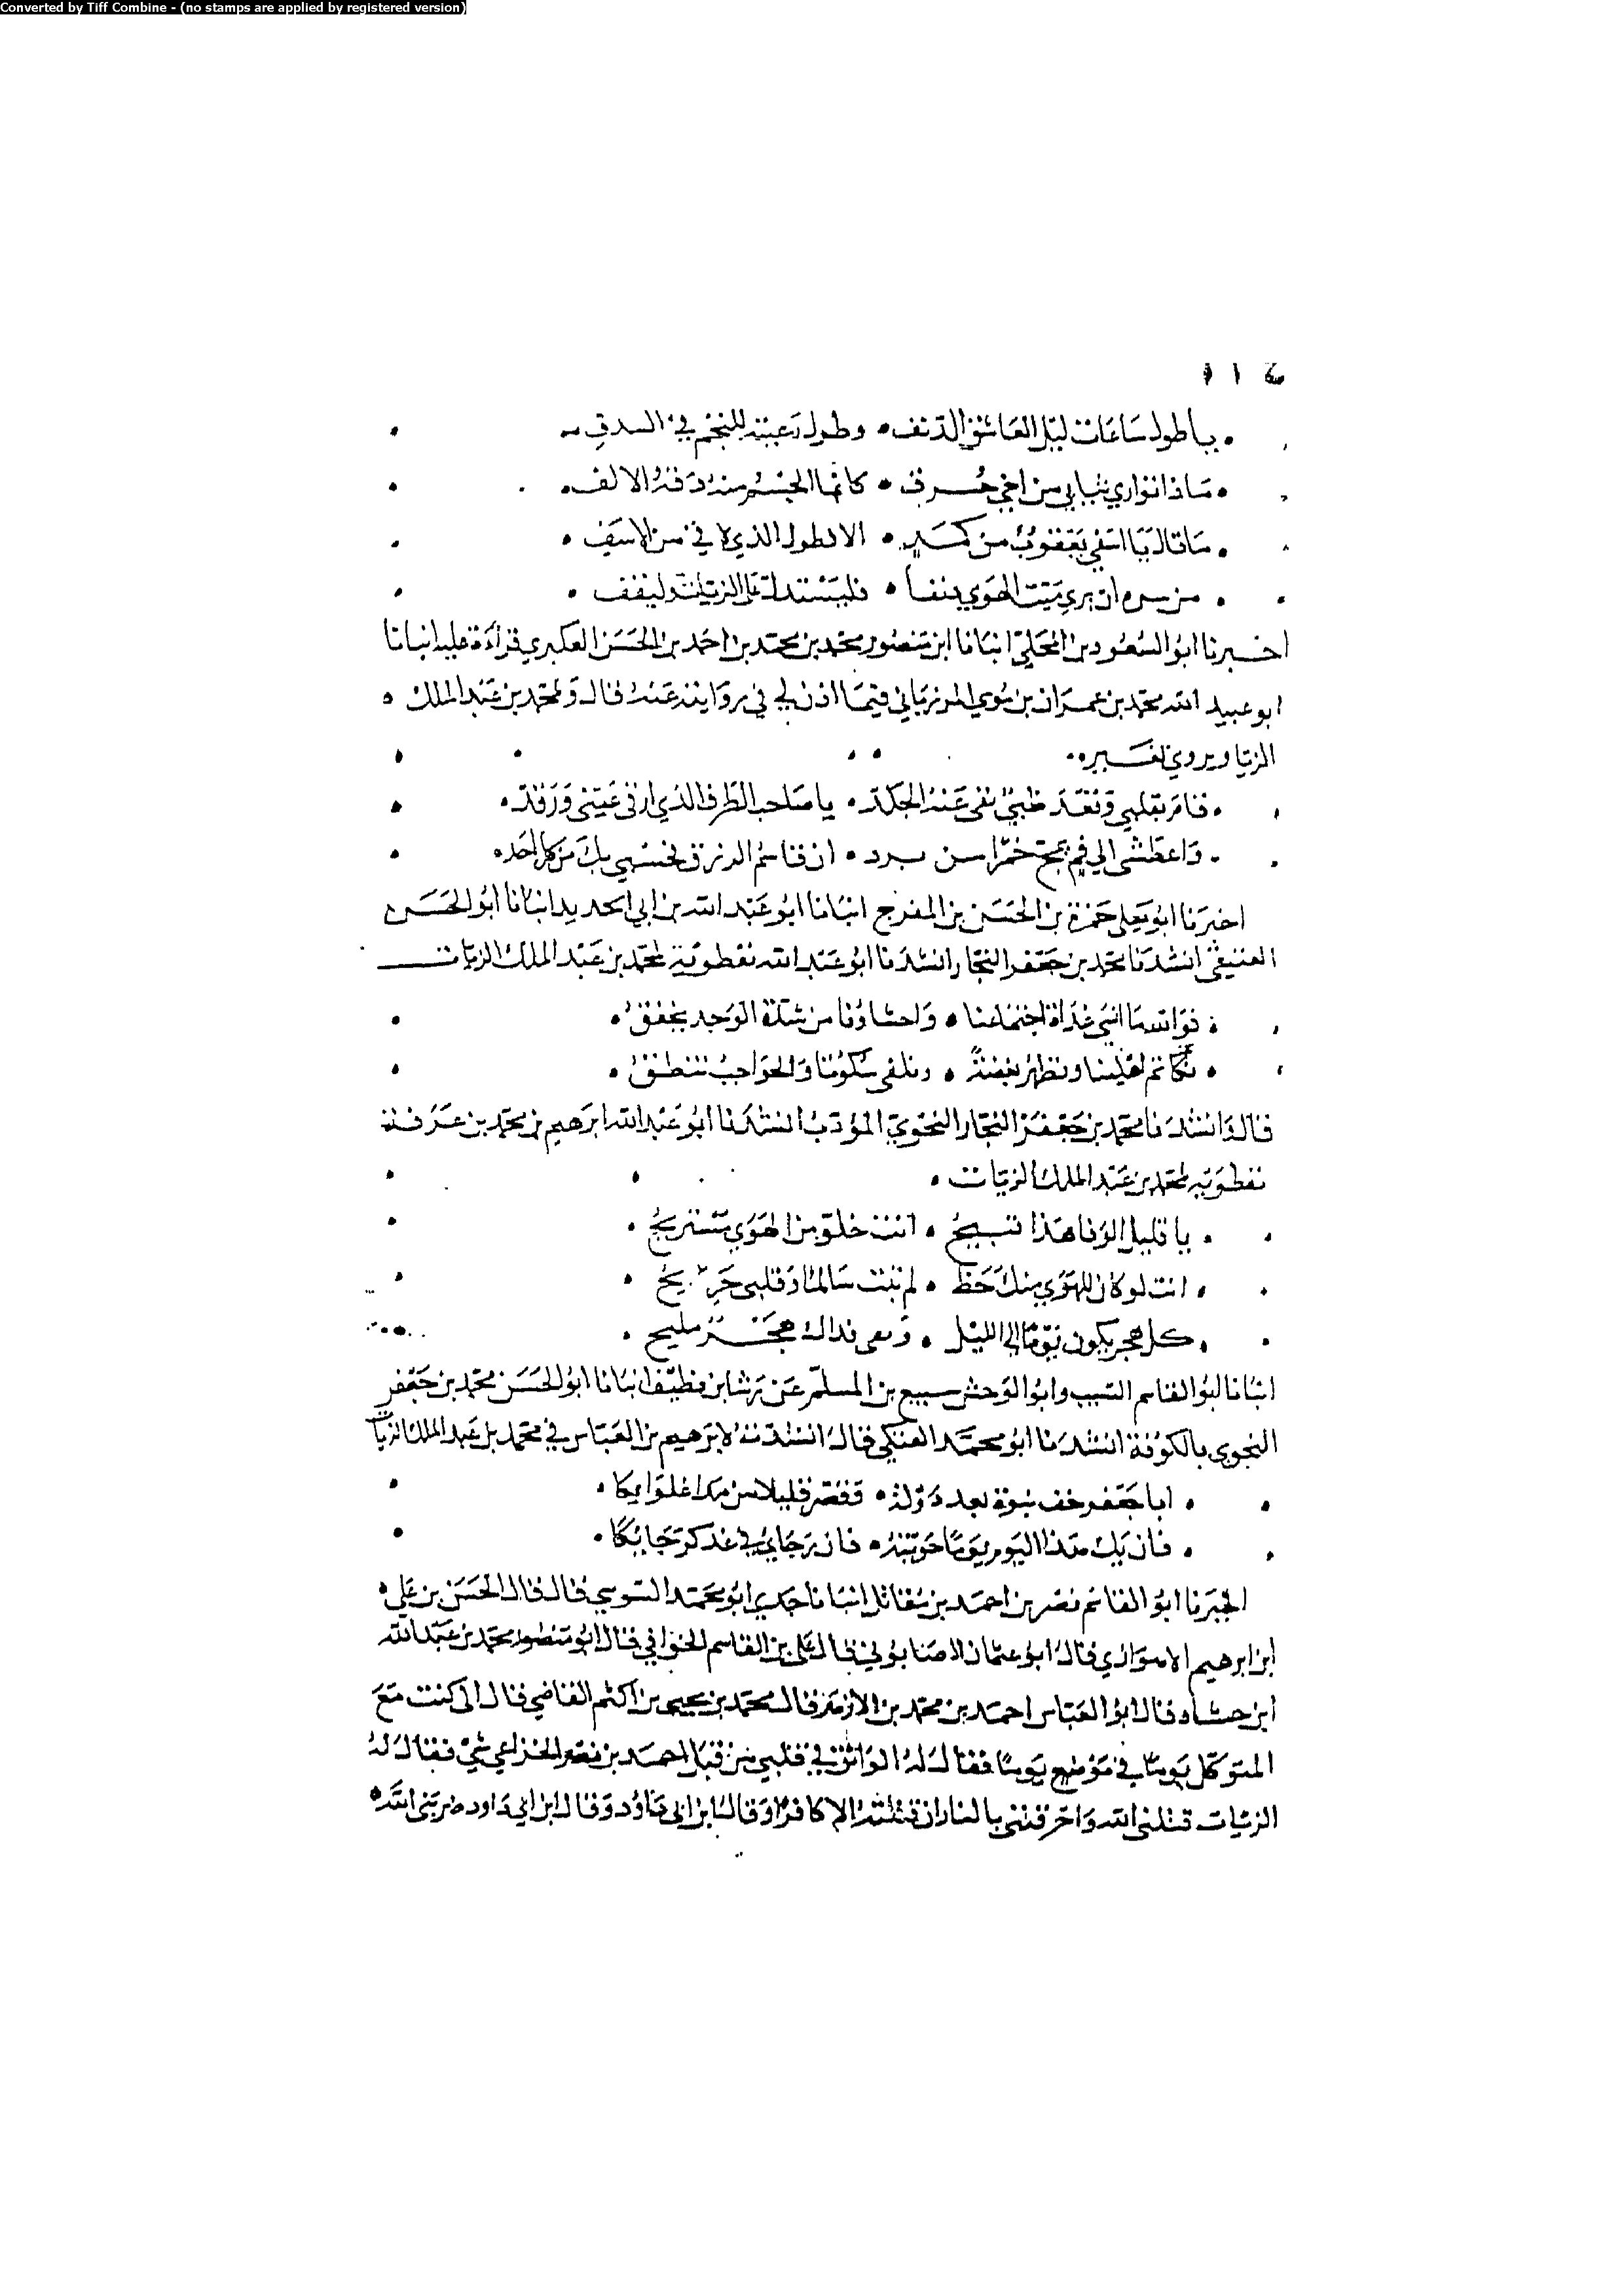 Converted by Tiff Combine - (no stamps are applied by registered version)
يا طول ساعات ليل العاشق الدنف • وطول رعيته للنجم في السدف
ماذا تواري ثيابي من اخي حرق • كانما الجسم منه دقة الالف
ما قال يا اسفي يعقوب من كمد • الا لطول الذي لاقى من الاسف
من سره ان يرى ميت الهوى دنفا • فليستدل على الزيات وليقف
اخبرنا ابو السعود بن المجلي انبانا ابو منصور محمد بن محمد بن احمد بن الحسن العكبري قراءة عليه انبانا
ابو عبيد الله محمد بن عمران بن موسي المرزباني فيما اذن لي في روايته عنه قال ولمحمد بن عبد الملك
الزيات ويروي لغيره
قام بقلبي وقعد ظبي نفى عنه الجلد • يا صاحب الطرف الذي ارق عيني ورقد
واعطشى الي فم يمج خمرا من برد • ان قاسم الرزق فحسبي بك من كل احد
اخبرنا ابو يعلى حمزة بن الحسن بن المفرج انبانا ابو عبد الله بن ابي الحديد انبانا ابو الحسن
العتيقي انشدنا محمد بن جعفر النجار انشدنا ابو عبد الله نفطويه لمحمد بن عبد الملك الزيات
فوالله ما انسى غداة اجتماعنا • واحشاؤنا من شدة الوجد تخفق
نكاتم اهلينا ونظهر بغضة • ونلقى سكوتا والحواجب تنطق
قال وانشدنا محمد بن جعفر النجار النحوي المؤدب انشدنا ابو عبد الله ابرهيم بن محمد بن عرفة
نفطويه لمحمد بن عبد الملك الزيات
يا قليل الوفا هذا قبيح • انت خلو من الهوى مستريح
انت لو كان للهوى منك حظ • لم تبت سالما وقلبي جريح
كل هجر يكون يوما الى الليل • هجر مليح
انبانا ابو القاسم النسيب وابو الوحش سبيع بن المسلم عن رشا بن نظيف انبانا ابو الحسن محمد بن جعفر
النحوي بالكوفة انشدنا ابو محمد العتكي قال انشدته لابرهيم بن العباس في محمد بن عبد الملك الزيات
ابا جعفر خف نبوة بعد دولة • فقصر قليلا من مدا غلوايكا
فان يك هذا اليوم يوما حويته • فان رجاي في غد كرجايكا
اخبرنا ابو القاسم نصر بن احمد بن مقاتل انبانا جدي ابو محمد السوسي قال قال الحسن بن علي
ابن ابرهيم الاهوازي قال ابو عثمان الصابوني قال علي بن القاسم قال ابو منصور محمد بن عبد الله
ابن حشاد قال ابو العباس احمد بن محمد بن الازهر قال محمد بن يحيى بن اكثم القاضي قال ابي كنت مع
المتوكل يوما في موضع يوما فقال له الواثق في قلبي من قتل احمد بن نصر الخزاعي شي فقال له
الزيات قتلني الله واحرقني بالنار ان قتلته الا كافرا وقال ابن ابي داود وقال ابن ابي داود ضربني الله